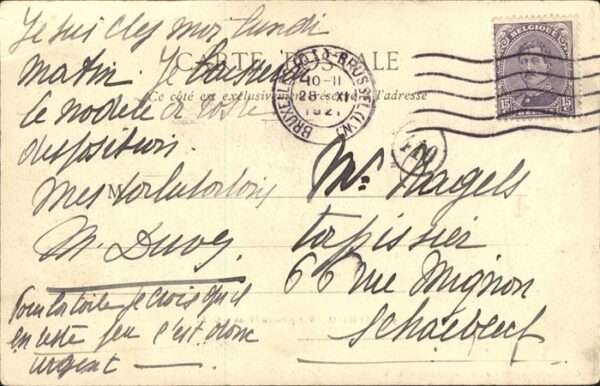 Je suis chez moi lundi
matin. Je
le modèle à votre
disposition.
Mes salutations
M. Duvey
Pour la toile je crois qu'il
en reste peu c'est donc
urgent
CARTE POSTALE
Ce côté est exclusivement réservé à l'adresse
BRUXELLES (Q.L.) BRUSSEL (L.W.)
10-11
28 XI
1921
BELGIQUE
15 15
Mr. Nagels
tapissier
66 rue Mignon
Schaerbeek